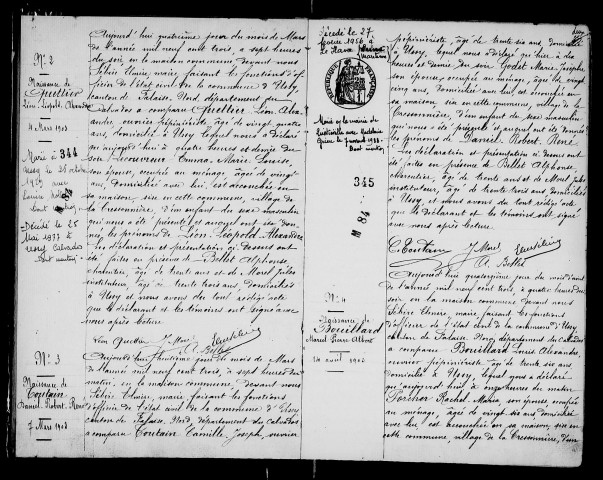 N° 2
Naissance de
Quellier
Léon Léopold Alexandre
4 Mars 1903
Marié à
344
M 84
Décédé le 25
Mai 1977 à
Ussy Calvados
Aujourd'hui quatrième jour du mois de Mars
de l'année mil neuf cent trois, à sept heures
du soir, en la maison commune, devant nous
Maire, faisant les fonctions d'of-
ficier de l'état civil de la commune d'Ussy,
canton de Falaise, Nord, département du
Calvados, a comparu Quellier Léon Alex-
andre, ouvrier pépiniériste, âgé de vingt quatre
ans, domicilié à Ussy, lequel nous a déclaré
qu'aujourd'hui à quatre heures et demie du
soir Lecouvreur Emma Marie Louise,
son épouse, occupée au ménage, âgée de vingt
ans, domiciliée avec lui, est accouchée en
sa maison, sise en cette commune, village de
la Cressonnière, d'un enfant du sexe masculin
qui nous a été présenté et auquel ont été don-
nés les prénoms de Léon Léopold Alexandre
Les déclaration et présentation ci dessus ont
été faites en présence de Bellet Alphonse,
charcutier, âgé de trente ans et de Morel Jules
instituteur, âgé de trente trois ans, domiciliés
à Ussy et nous avons du tout rédigé acte
que le déclarant et les témoins ont signé avec
nous après lecture.
Léon Quellier J. Morel
A. Bellet
N° 3
Naissance de
Coutain
Daniel Robert René
7 Mars 1903
Aujourd'hui huitième jour du mois de Mars
de l'année mil neuf cent trois, à sept heures du
matin, en la maison commune, devant nous
Maire, faisant les fonctions
d'officier de l'état civil de la commune d'Ussy
canton de Falaise, Nord, département du Calvados
a comparu Coutain Camille Joseph, ouvrier
Décédé le 27
février 1956 à
Le Havre
RÉPUBLIQUE FRANÇAISE
345
M 84
pépiniériste, âgé de trente six ans, domicilié
à Ussy, lequel nous a déclaré qu'hier à dix
heures et demie du soir Godet Marie Joseph,
son épouse, occupée au ménage, âgée de vingt
cinq ans, domiciliée avec lui, est accouchée en
sa maison sise en cette commune, village de la
Cressonnière, d'un enfant du sexe masculin
qui nous a été présenté et auquel ont été donnés
les prénoms de Daniel Robert René
Les déclaration et présentation ci dessus ont
été faites en présence de Bellet Alphonse
charcutier, âgé de trente ans et de Morel Jules
instituteur, âgé de trente trois ans domiciliés
à Ussy, et nous avons du tout rédigé acte
que le déclarant et les témoins ont signé
avec nous après lecture.
C. Coutain J. Morel
A. Bellet
N° 4
Naissance de
Bouillard
Marcel Pierre Albert
14 avril 1903
Aujourd'hui quatorzième jour du mois d'avril
de l'année mil neuf cent trois, à quatre heures du
soir, en la maison commune devant nous
Maire, faisant les fonctions
d'officier de l'état civil de la commune d'Ussy,
canton de Falaise, Nord, département du Calvados
a comparu Bouillard Louis Alexandre,
ouvrier pépiniériste, âgé de trente six ans,
domicilié à Ussy, lequel nous a déclaré
qu'aujourd'hui à onze heures du matin
Porcher Rachel Maria, son épouse occupée
au ménage, âgée de vingt six ans, domiciliée
avec lui, est accouchée en sa maison, sise en
cette commune, village de la Cressonnière, d'un